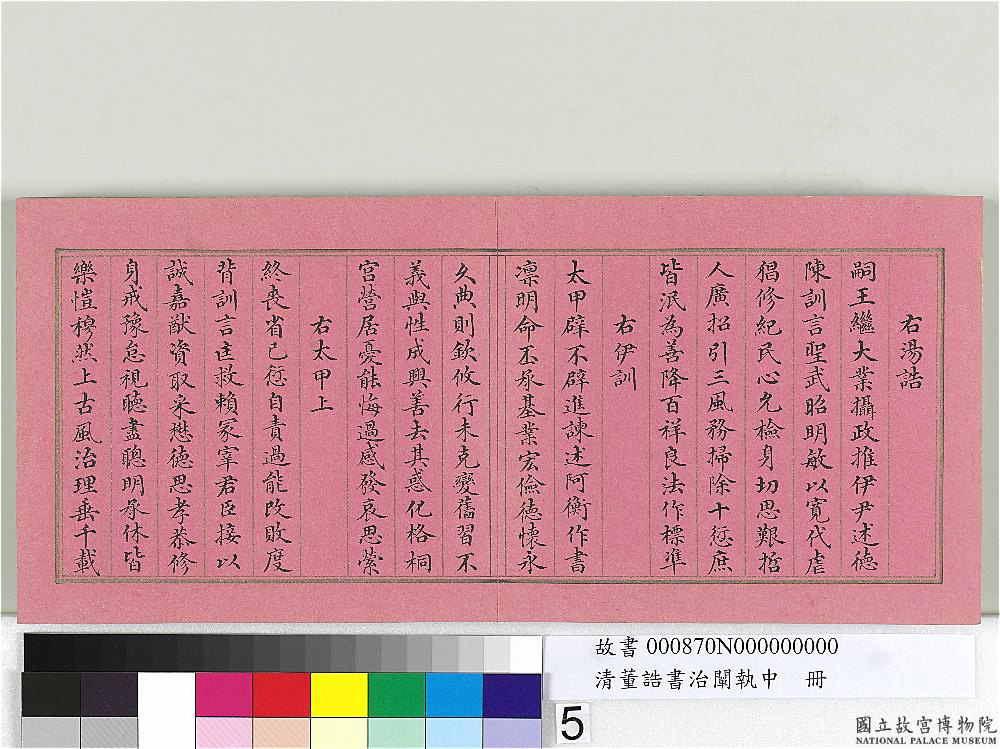 右湯誥
嗣王繼大業攝政推伊尹述德
陳訓言聖武昭明敏以寬代虐
猖修紀民心允檢身切思艱哲
人廣招引三風務掃除十愆庶
皆泯為善降百祥良法作標準
右伊訓
太甲辟不辟進諫述阿衡作書
凜明命丕承基業宏儉德懷永
久典則欽攸行未克變舊習不
義與性成興善去其惑化格桐
宮營居憂能悔過感發哀思縈
右太甲上
終喪省己愆自責過能改敗度
背訓言匡救賴冢宰君臣接以
誠嘉猷資取采懋德思孝恭修
身戒豫怠視聽盡聰明承休皆
樂愷穆然上古風治理垂千載
故書 000870N000000000
清董誥書治闡執中 冊
5
國立故宮博物院
NATIONAL PALACE MUSEUM